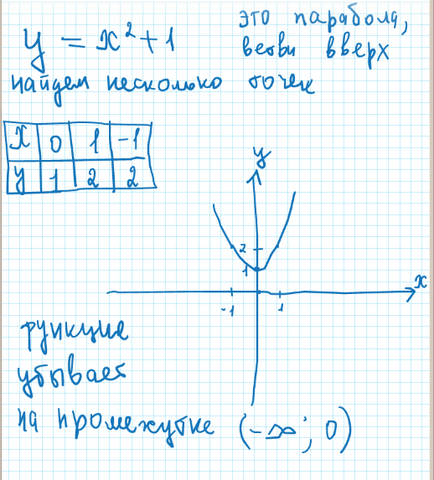 y = x² + 1
это парабола,
ветви вверх
найдем несколько точек
x 0 1 -1
y 1 2 2
y
2
1
x
-1 1
функция
убывает
на промежутке (-∞; 0)